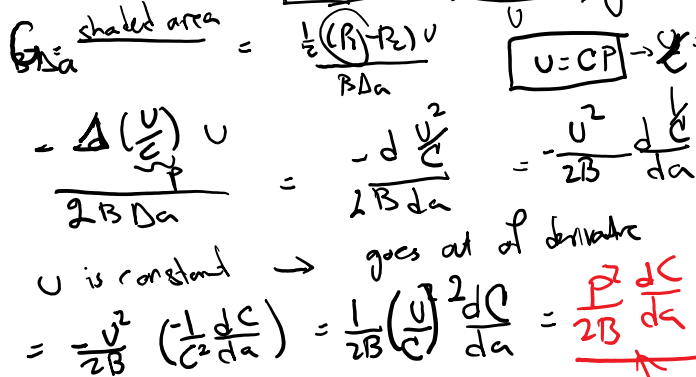 G = shaded area / BΔa = ½ (P₁ - P₂) U / BΔa
U = CP →
= -Δ (U/C) U / 2BΔa = -d U²/C / 2B da = - U²/2B d 1/C / da
P
U is constant → goes out of derivative
= -U²/2B (-1/C² dC/da) = 1/2B (U/C)² dC/da = P²/2B dC/da